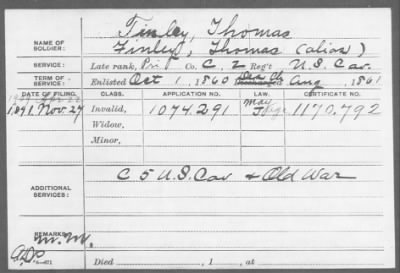 NAME OF SOLDIER: Finley, Thomas
Finley, Thomas (alias)
SERVICE: Late rank, Pvt Co. C, 2 Reg't U.S. Cav.
TERM OF SERVICE: Enlisted Oct 1, 1860 Aug, 1861
DATE OF FILING. CLASS. APPLICATION NO. LAW. CERTIFICATE NO.
1891 Nov. 27 Invalid, 1074.291 May 1170.792
Widow,
Minor,
ADDITIONAL SERVICES: C 5 U.S. Cav & Old War
REMARKS:
Died , 1 , at